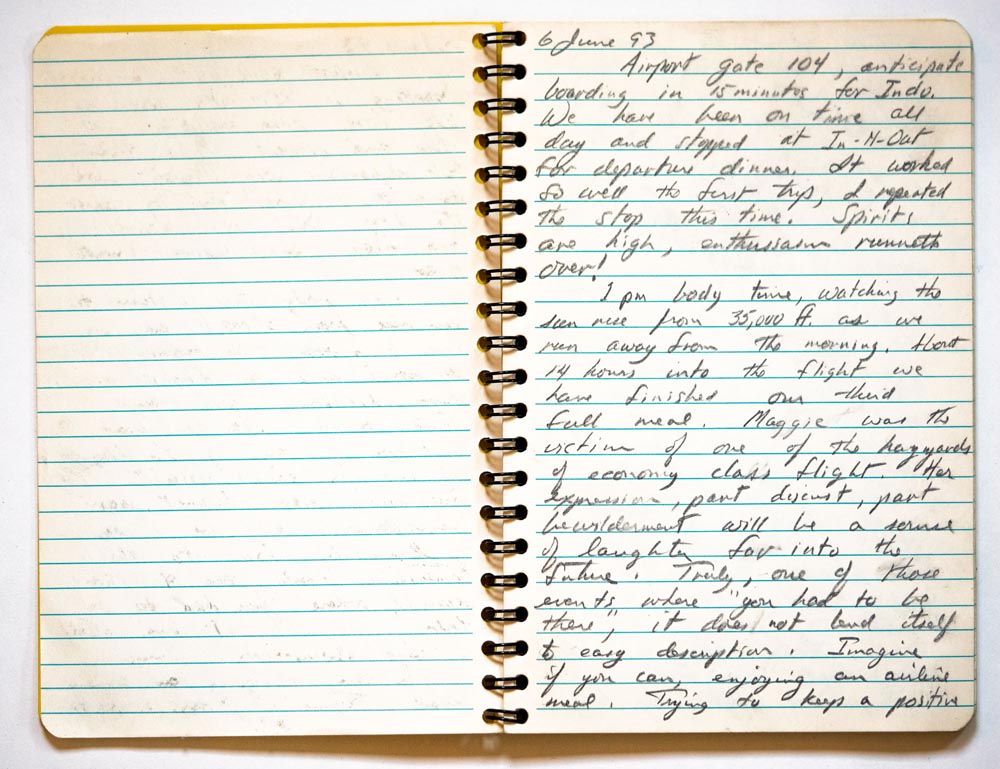 6 June 93
Airport gate 104, anticipate
boarding in 15 minutes for Indo.
We have been on time all
day and stopped at In-N-Out
for departure dinner. It worked
so well the first trip, I repeated
the stop this time. Spirits
are high, enthusiasm runneth
over!
1 pm body time, watching the
sun rise from 35,000 ft. as we
run away from the morning. About
14 hours into the flight we
have finished our third
full meal. Maggie was the
victim of one of the hazzards
of economy class flight. Her
expression, part discust, part
bewilderment will be a source
of laughter far into the
future. Truly, one of those
events where "you had to be
there", it does not lend itself
to easy description. Imagine
if you can, enjoying an airline
meal. Trying to keep a positive